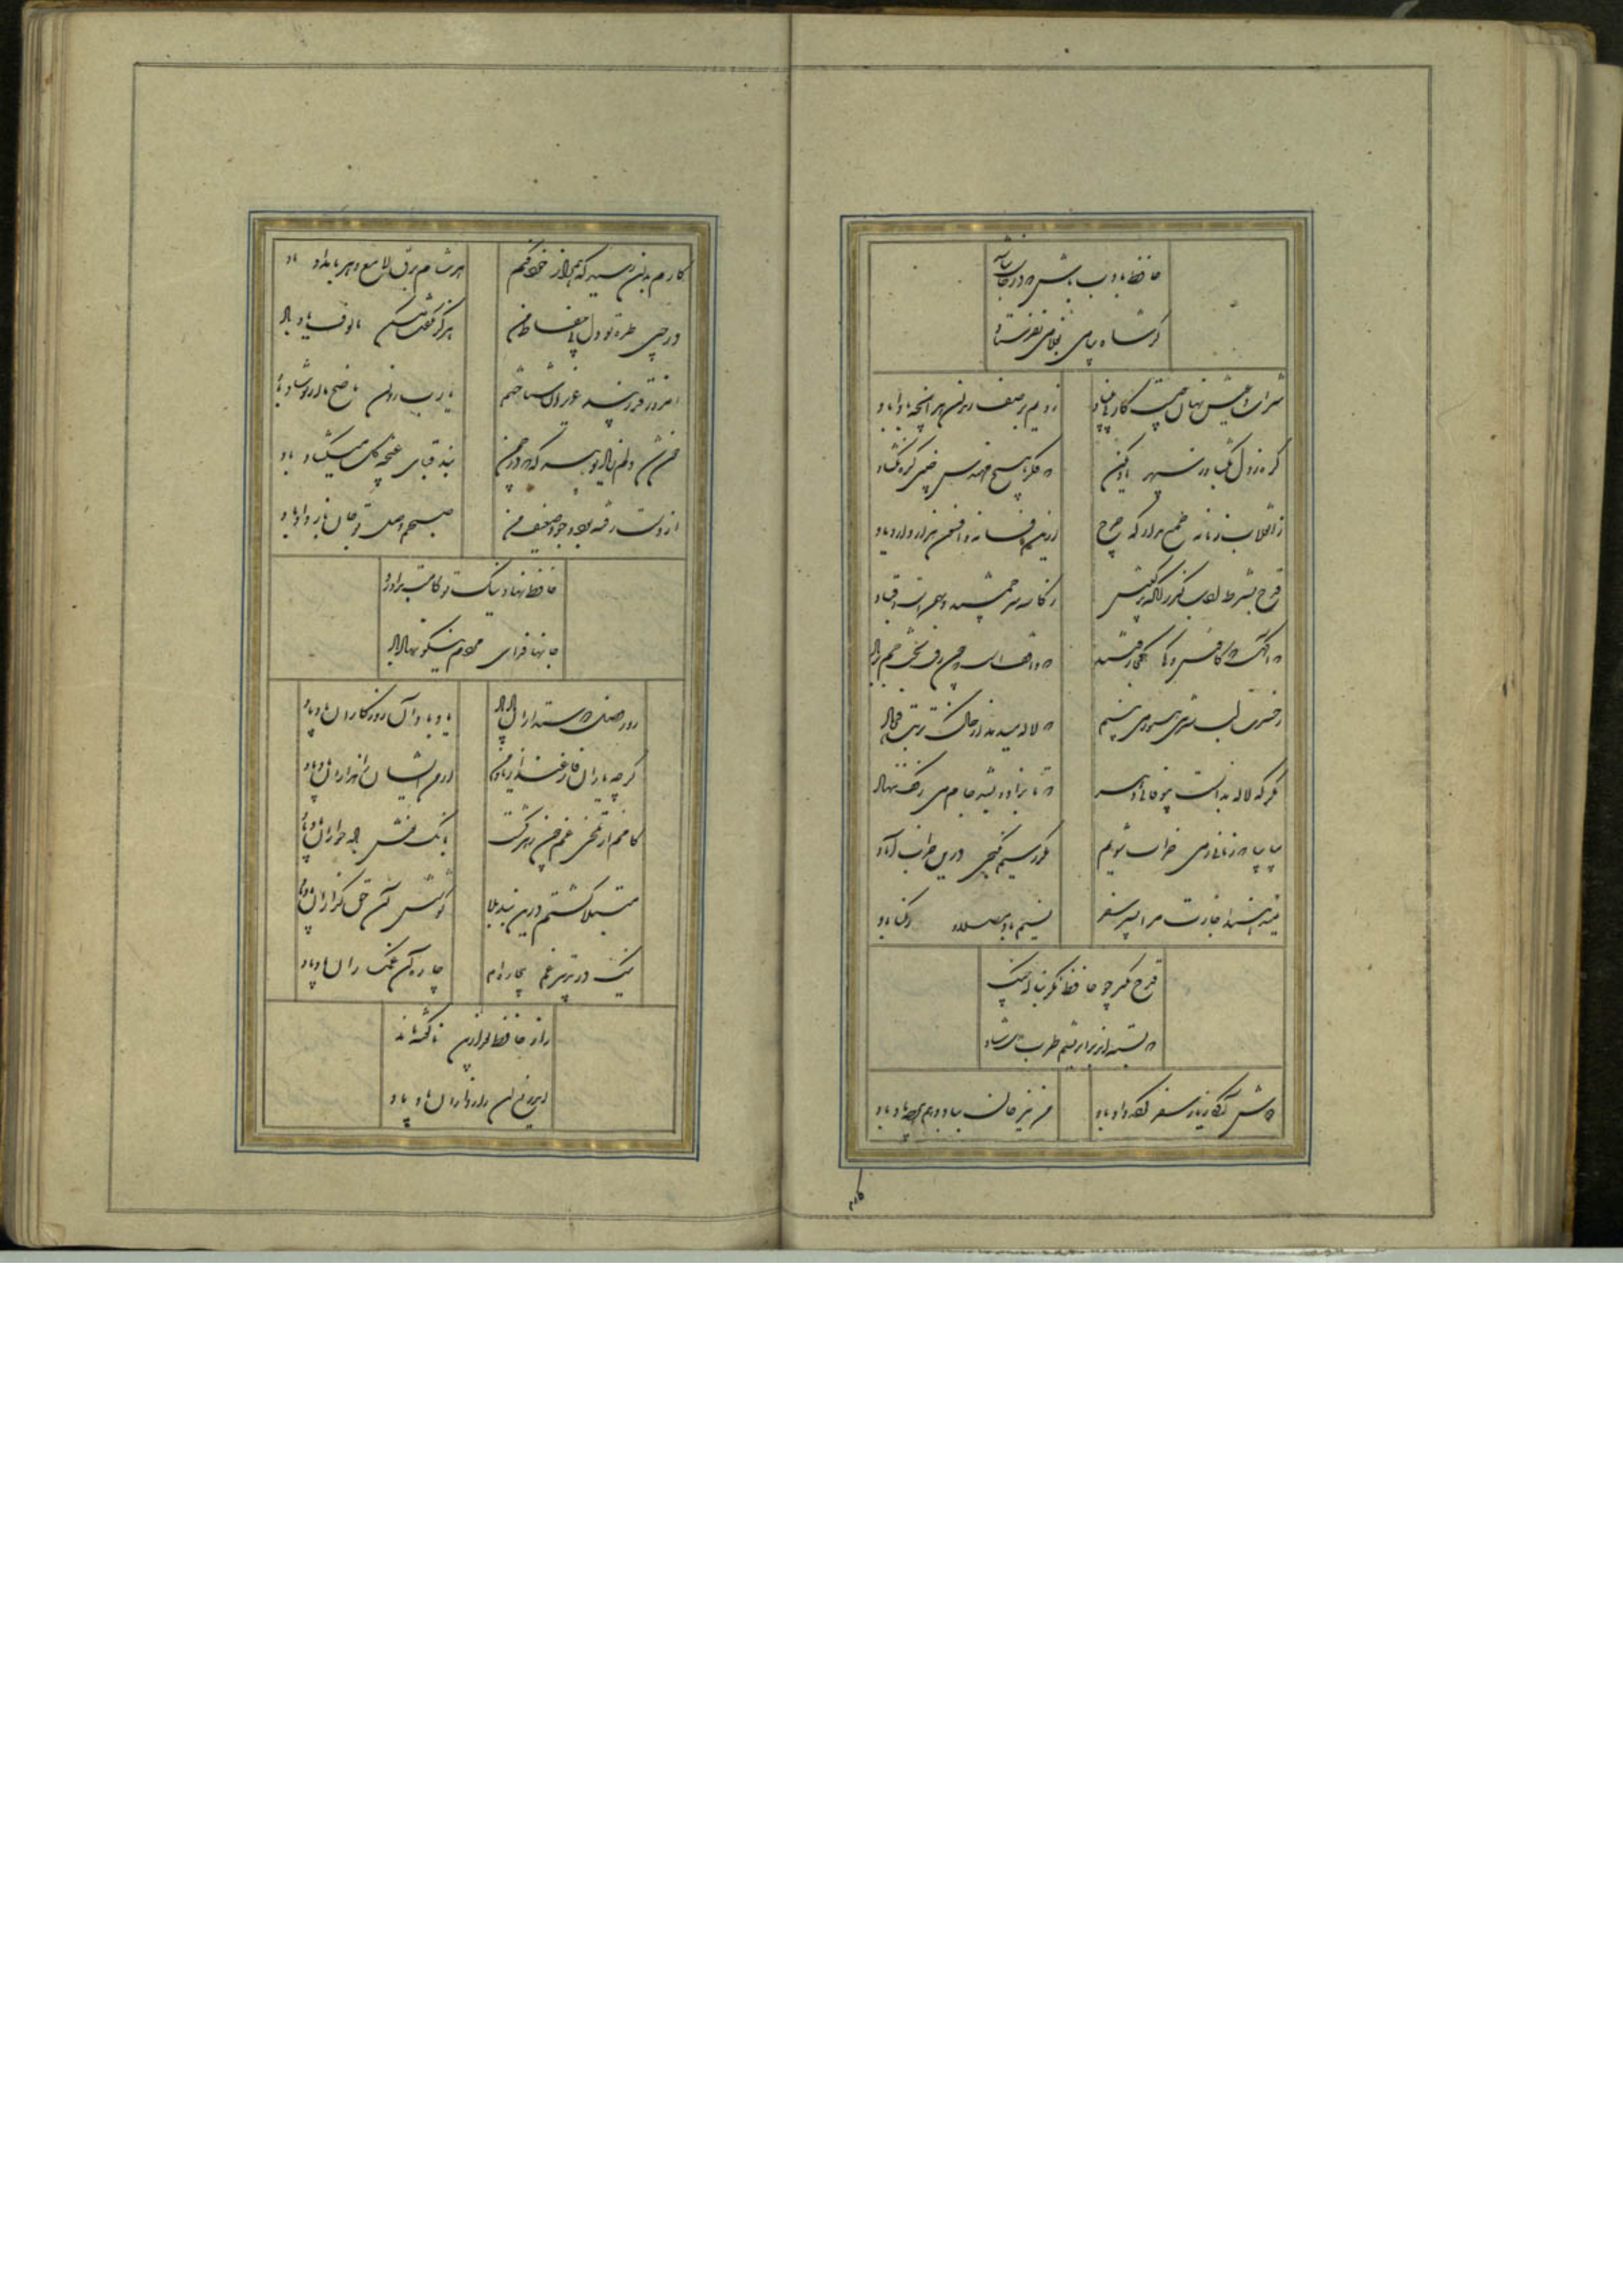 حافظ بادب باش که در خواست نباشد
گر شاه پیامی بغلامی نفرستاد
شراب و عیش نهان چیست کار بی بنیاد
زدیم بر صف رندان هر آنچه بادا باد
گره ز دل بگشا وز سپهر یاد مکن
که فکر هیچ مهندس چنین گره نگشاد
ز انقلاب زمانه عجب مدار که چرخ
ازین فسانه و افسون هزار دارد یاد
قدح بشرط ادب گیر زانکه ترکیبش
ز کاسه سر جمشید و بهمنست و قباد
که آگهست که کاوس و کی کجا رفتند
که واقفست که چون رفت تخت جم بر باد
ز حسرت لب شیرین هنوز می بینم
که لاله میدمد از خاک تربت فرهاد
مگر که لاله بدانست بیوفایی دهر
که تا بزاد و بشد جام می ز کف ننهاد
بیا بیا که زمانی ز می خراب شویم
مگر رسیم بگنجی درین خراب آباد
نمیدهند اجازت مرا بسیر سفر
نسیم باد مصلی و رکناباد
قدح مگیر چو حافظ مگر بناله چنگ
که بسته اند بر ابریشم طرب دل شاد
دوش آگهی ز یار سفر کرده داد باد
من نیز جان بباد دهم هرچه باد باد
کارم بدان رسید که همراز خود کنم
هر شام برق لامع و هر بامداد باد
در چین طره تو دل بی حفاظ من
هرگز نگفت مسکن مالوف یاد باد
امروز قدر پند عزیزان شناختم
یا رب روان ناصح ما از تو شاد باد
خون شد دلم بیاد تو هرگه که در چمن
بند قبای غنچه گل میگشاد باد
از دست رفته بود وجود ضعیف من
صبحم بوصل تو جان باز داد باد
حافظ نهاد نیک تو کامت برآورد
جانها فدای مردم نیکو نهاد باد
روز وصل دوستداران یاد باد
یاد باد آن روزگاران یاد باد
گرچه یاران فارغند از یاد من
از من ایشان را هزاران یاد باد
کامم از تلخی غم چون زهر گشت
بانگ نوش باده خواران یاد باد
مبتلا گشتم درین بند بلا
کوشش آن حق گزاران یاد باد
نیک در تدبیر غم بیچاره ام
چاره آن غمگساران یاد باد
راز حافظ بعد ازین ناگفته ماند
ای دریغ آن رازداران یاد باد